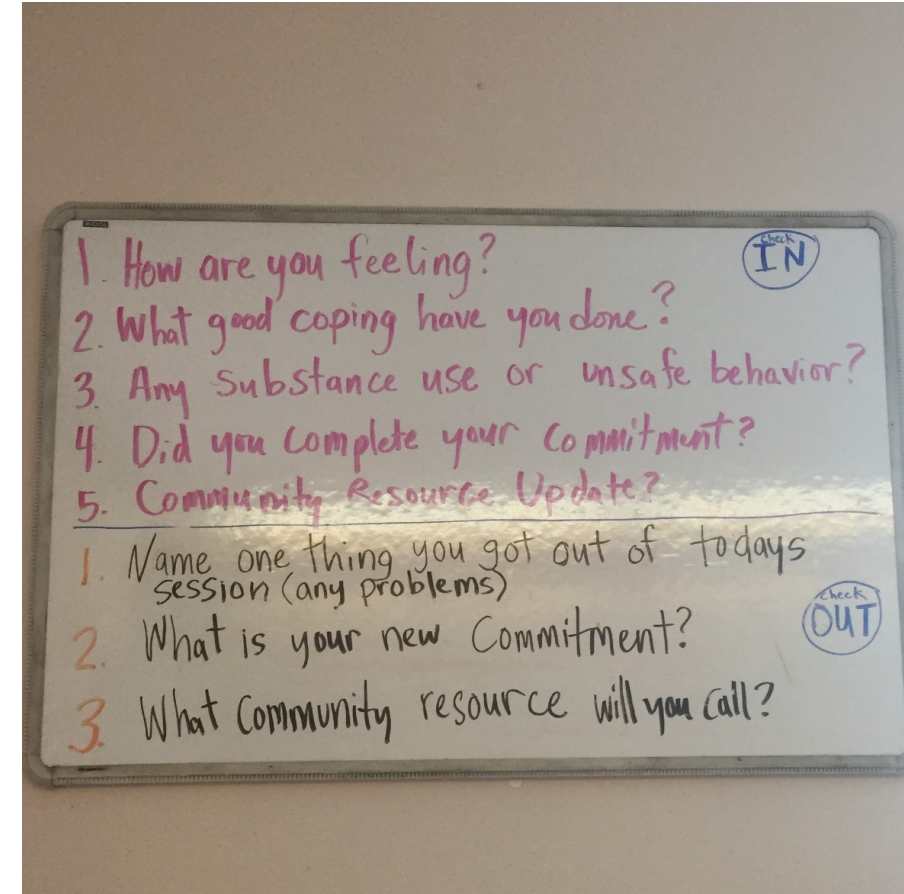 1. How are you feeling?
check
IN
2. What good coping have you done?
3. Any substance use or unsafe behavior?
4. Did you complete your commitment?
5. Community Resource Update?
1. Name one thing you got out of todays
session (any problems)
check
OUT
2. What is your new Commitment?
3. What Community resource will you call?